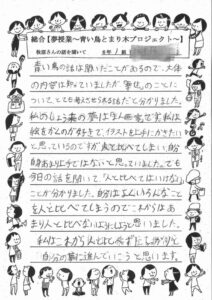 総合【夢授業～青い鳥とまり木プロジェクト～】
牧原さんの話を聞いて 6年1組
青い鳥の話は聞いたことがあるので、大体
の内容は知っていましたが、
について、とても考えさせられる話だと分かりました。
私のしょう来の夢は
絵をかくのが好きで、イラストを上手にかきたい
と思っているのですが、友達と比べてしまい、自分
自身あまり上手ではないと思っていました。でも
今日の話を聞いて「人と比べてはいけない」
ことが分かりました。自分はいろいろなこと
を人と比べてしまうのでこれからはあ
まり人と比べないようにしようと思いました。
私はこれから人とは比べずにしっかりと
自分の夢に進んでいこうと思います。